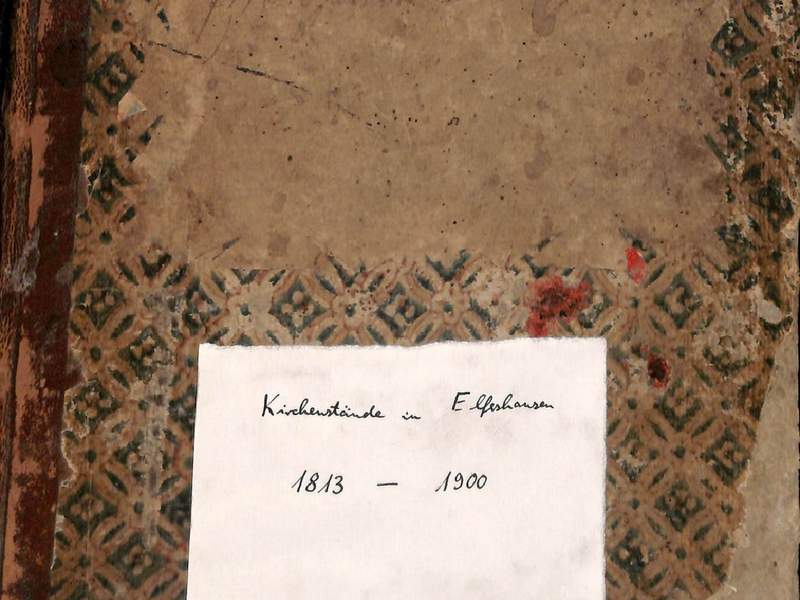 Kirchenstände in Elfershausen
1813 – 1900